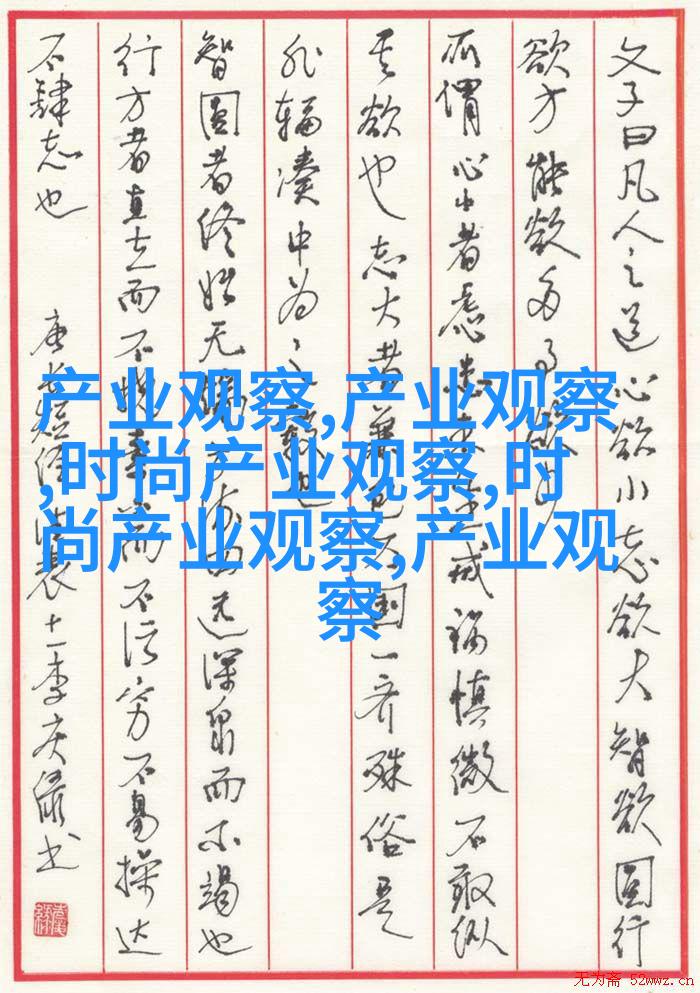 文子曰凡人之道心欲小志欲大智欲圆行
欲方能欲多事
所谓心小者虑患戒祸慎微不敢纵
其欲也志大者兼包万国一齐殊俗是
非辐凑中为之毂也
智圆者终始无端远深泉而不竭也
行方者直立而不挠素而不污穷不易操达
不肆志也
产业观察,产业观察
,时尚产业观察,时
尚产业观察,产业观
察
无为斋 52wwz.cn